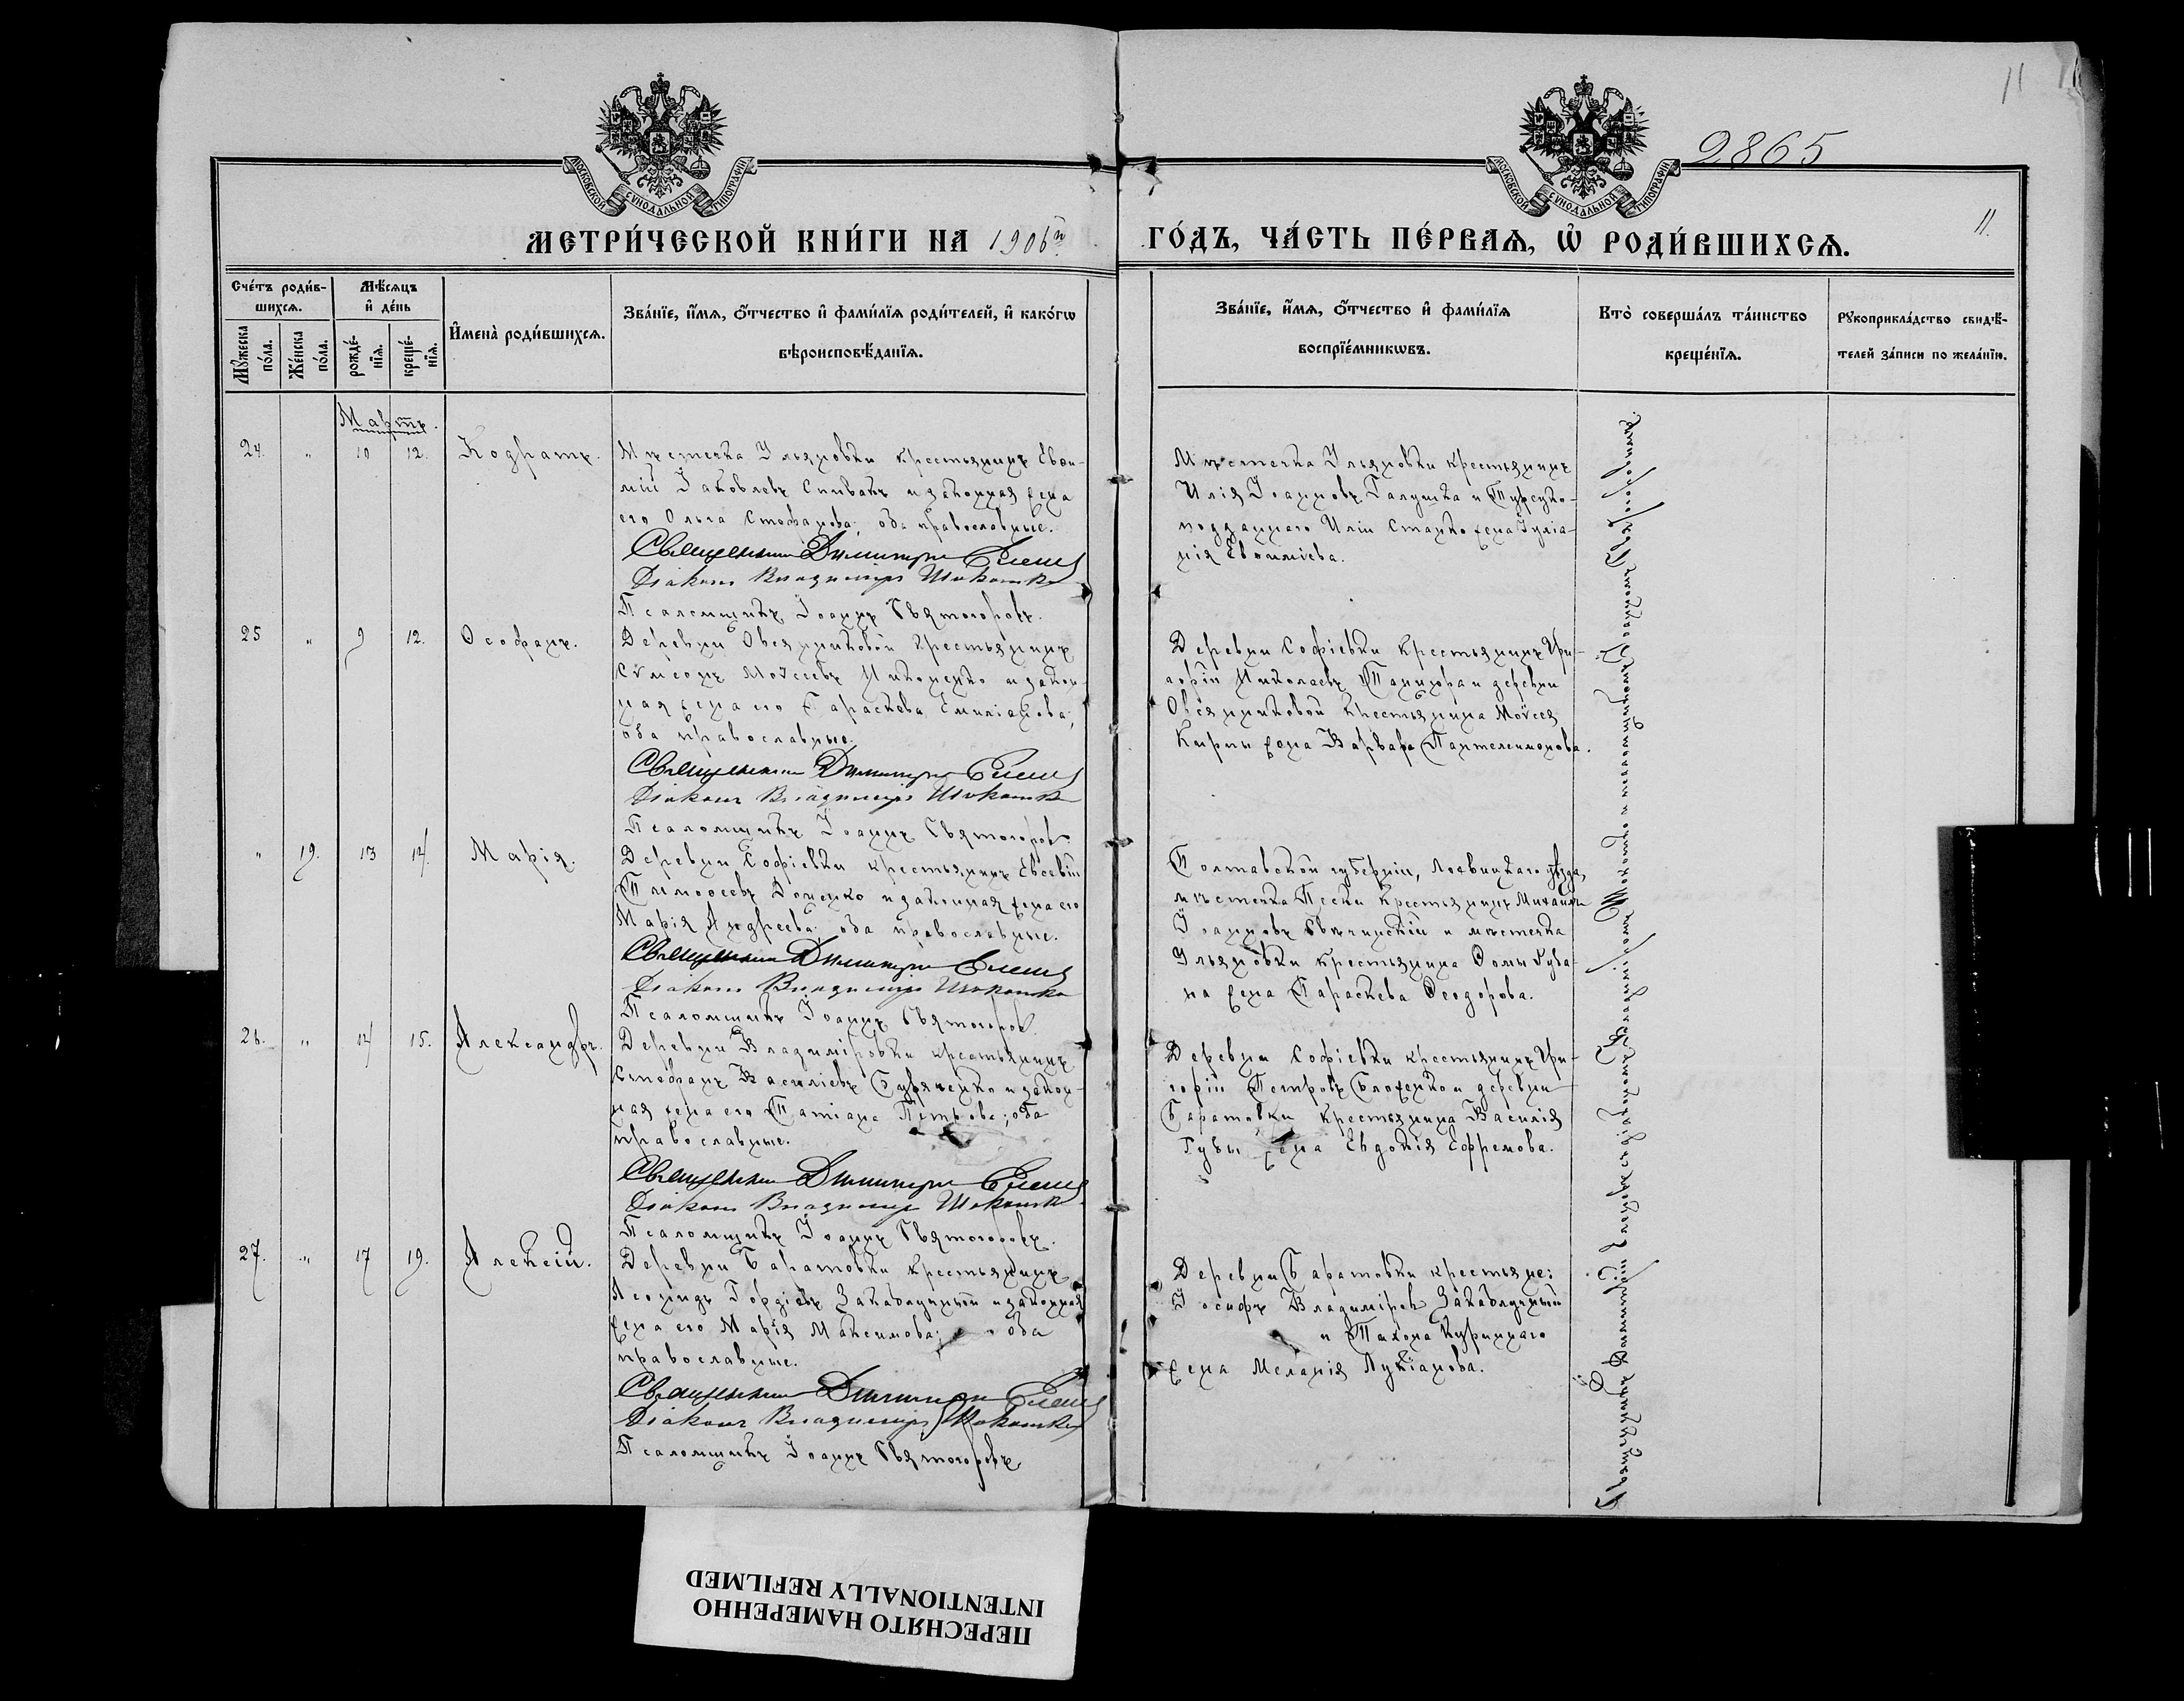 11
2865
МОСКОВСКОЙ СѴНОДАЛЬНОЙ ТИПОГРАФІИ
МОСКОВСКОЙ СѴНОДАЛЬНОЙ ТИПОГРАФІИ
МЕТРИ́ЧЕСКОЙ КНИ́ГИ НА 1906й ГО́ДЪ, ЧА́СТЬ ПЕ́РВАѦ, Ѡ҆ РОДИ́ВШИХСѦ.
11.
Сче́тъ роди́в-
шихсѧ.
Мꙋ́жеска по́ла.
Же́нска по́ла.
Мѣ́сѧцъ
и҆ де́нь
рожде́-нїѧ.
креще́-нїѧ.
И҆мена̀ роди́вшихсѧ.
Зва́нїе, и҆́мѧ, ѻ҆́тчество и҆ фами́лїѧ роди́телей, и҆ како́гѡ
вѣроисповѣ́данїѧ.
Зва́нїе, и҆́мѧ, ѻ҆́тчество и҆ фами́лїѧ
воспрїе́мникѡвъ.
Кто̀ соверша́лъ та́инство
креще́нїѧ.
Рꙋкоприкла́дство свидѣ́-
телей за́писи по жела́нїю.
Мартъ.
24. " 10 12. Кодратъ.
Мѣстечка Ульяновки крестьянинъ Евѳи-
мій Іаковлевъ Спивакъ и законная жена
его Ольга Стефанова; оба православные.
Священникъ Димитрій
Діаконъ Владимиръ
Псаломщикъ Іоаннъ Святогоровъ.
Мѣстечка Ульяновки крестьянинъ
Илія Іоанновъ Галушка и Турецко-
подданнаго Иліи Станко жена Іуліа-
нія Евѳиміева.
25 " 9 12. Ѳеофанъ.
Деревни Овсянниковой крестьянинъ
Сѵмеонъ Моѵсеевъ Никоненко и закон-
ная жена его Параскева Емиліанова;
оба православные.
Священникъ Димитрій
Діаконъ Владимиръ
Псаломщикъ Іоаннъ Святогоровъ
Деревни Софіевки крестьянинъ Гри-
горій Николаевъ и деревни
Овсянниковой крестьянина Моѵсея
Кирпы жена Варвара Пантелеимонова.
" 19. 13 14. Марія.
Деревни Софіевки крестьянинъ Евсевій
Тимоѳеевъ Доценко и законная жена его
Марія Андреева; оба православные.
Священникъ Димитрій
Діаконъ Владимиръ
Псаломщикъ Іоаннъ Святогоровъ.
Полтавской губерніи, Лохвицкаго уѣзда,
мѣстечка Пески крестьянинъ Михаилъ
Іоанновъ и мѣстечка
Ульяновки крестьянина Ѳомы
жена Параскева Ѳеодорова.
26. " 14 15. Александръ.
Деревни Владиміровки крестьянинъ
Стефанъ Василіевъ и закон-
ная жена его Татіана Петрова; оба
православные.
Священникъ Димитрій
Діаконъ Владимиръ
Псаломщикъ Іоаннъ Святогоровъ.
Деревни Софіевки крестьянинъ Гри-
горій Петровъ и деревни
Баратовки крестьянина Василія
Губы жена Евдокія Ефремова.
27. " 17 19. Алексій.
Деревни Баратовки крестьянинъ
Леонидъ Гордіевъ Закаблучный и законная
жена его Марія Максимова; оба
православные.
Священникъ Димитрій
Діаконъ Владимиръ
Псаломщикъ Іоаннъ Святогоровъ
Деревни Баратовки крестьяне:
Іосифъ Владиміровъ Закаблучный
и Тихона Курицнаго
жена Меланія Лукіанова.
Священникъ Димитрій съ діакономъ Владиміромъ и псаломщикомъ Іоанномъ Святогоровымъ.
ПЕРЕСНЯТО НАМЕРЕННО
INTENTIONALLY REFILMED